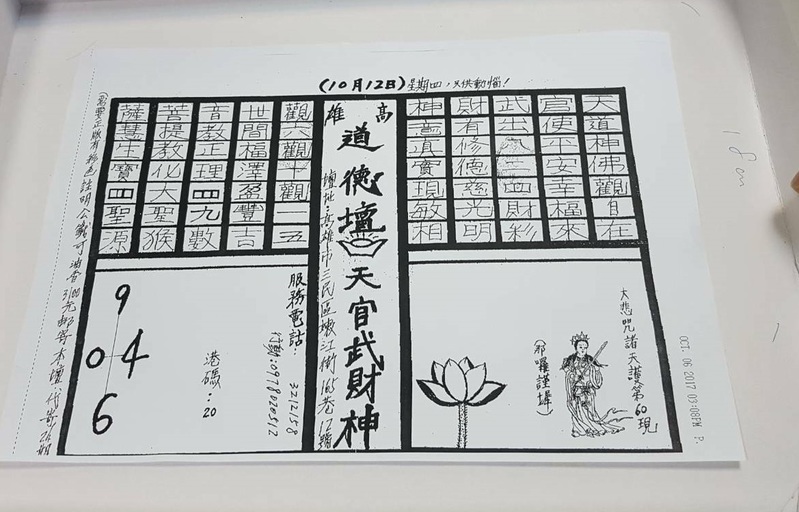 (10月12日)星期四,只供動惱!
天道神佛觀自在
官使平安幸福來
武出 生四財彩
財有修德慈光明
神 真實現敬相
高雄
道德壇
天官武財神
壇址:高雄市三民區嫩江街 巷12號
觀六觀十觀一五
世間福澤盈豐吉
音教正理四九數
菩提教化大聖猴
薩慧生寶四聖源
大悲咒諸天護第60現
(那囉謹墀)
服務電話: 3212158
行動:0978020512
港碼:20
9
04
6
正版有彩色註明公義可油香3100元郵寄本壇代寄
OCT. 06 2017 03:08PM P.